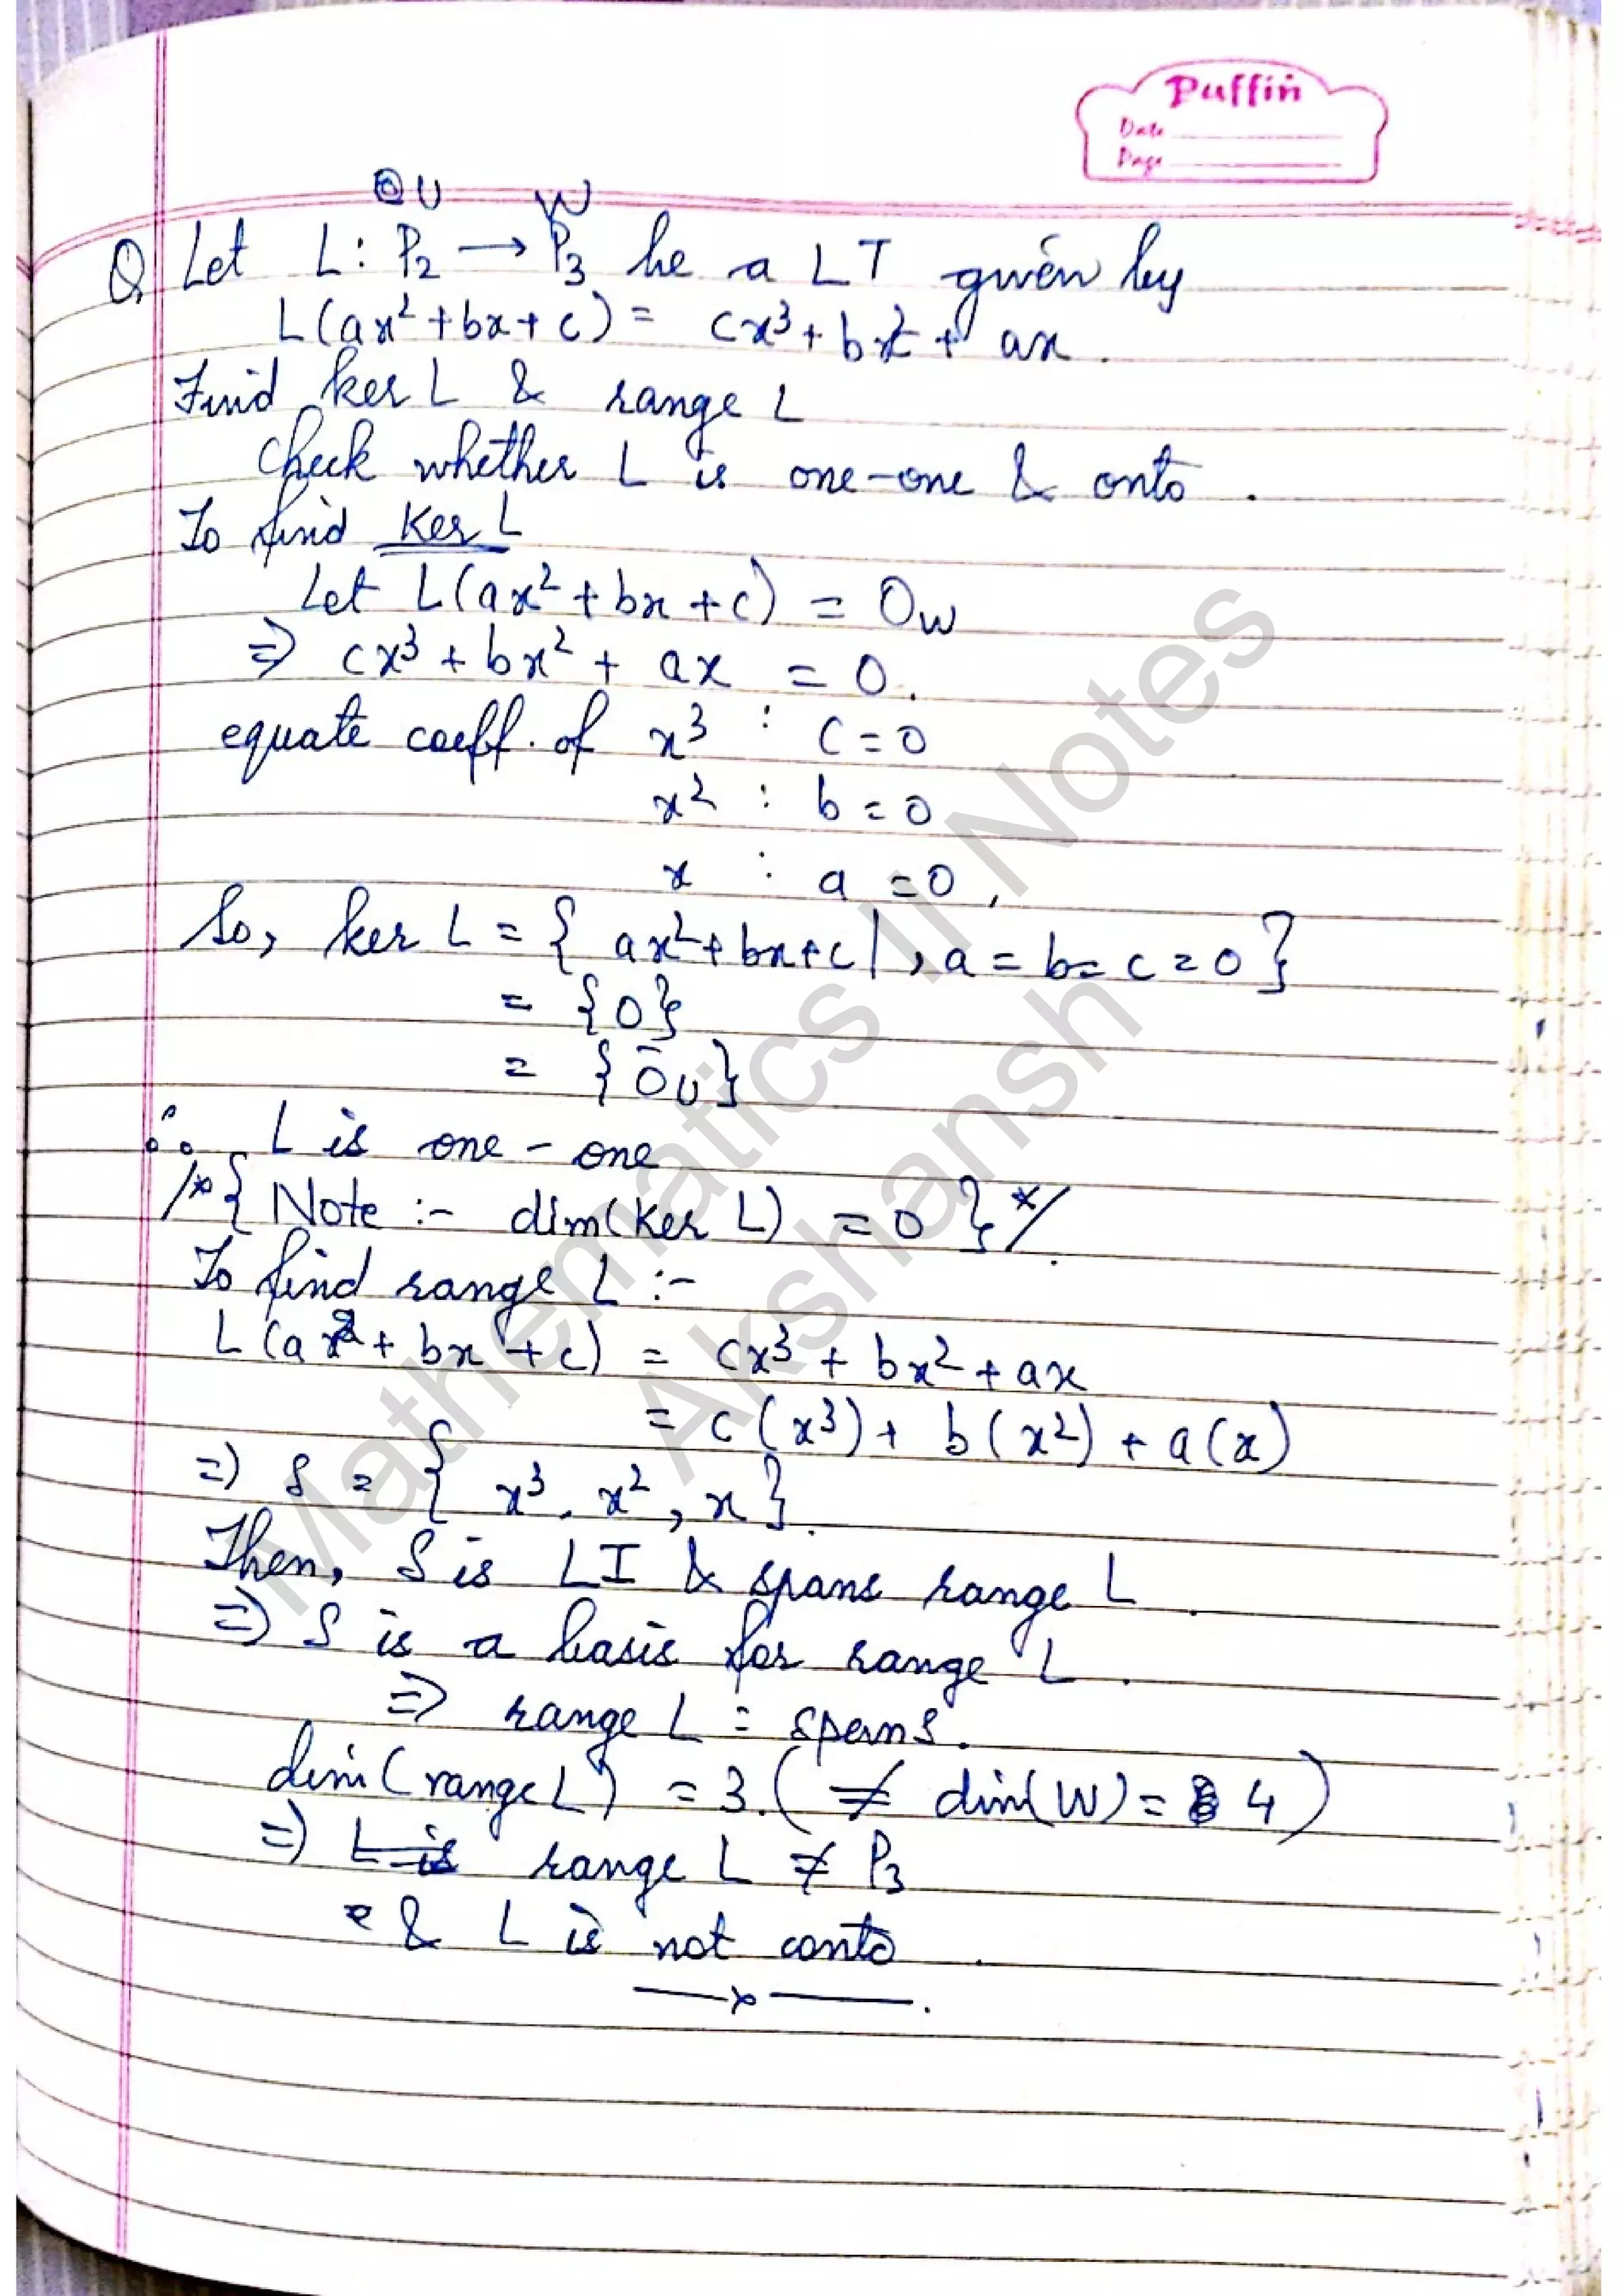 Puffin
Date
Page
U W
Q. Let L: P₂ → P₃ be a LT given by
L(ax² + bx + c) = cx³ + bx² + ax.
Find ker L & range L
Check whether L is one-one & onto.
To find Ker L
Let L(ax² + bx + c) = 0w
⇒ cx³ + bx² + ax = 0.
equate coeff. of x³ : c = 0
x² : b = 0
x : a = 0,
So, ker L = { ax² + bx + c | , a = b = c = 0 }
= {0}
= {0̄u}
∴ L is one-one
/*{ Note :- dim(Ker L) = 0 }*/.
To find range L :-
L(ax² + bx + c) = cx³ + bx² + ax
= c(x³) + b(x²) + a(x)
⇒ S = { x³, x², x }.
Then, S is LI & spans range L.
⇒ S is a basis for range L.
⇒ range L = span S.
dim(range L) = 3. ( ≠ dim(W) = 4 )
⇒ L is range L ≠ P₃
& L is not onto.
—x—.
Mathematics II Notes
Akshansh